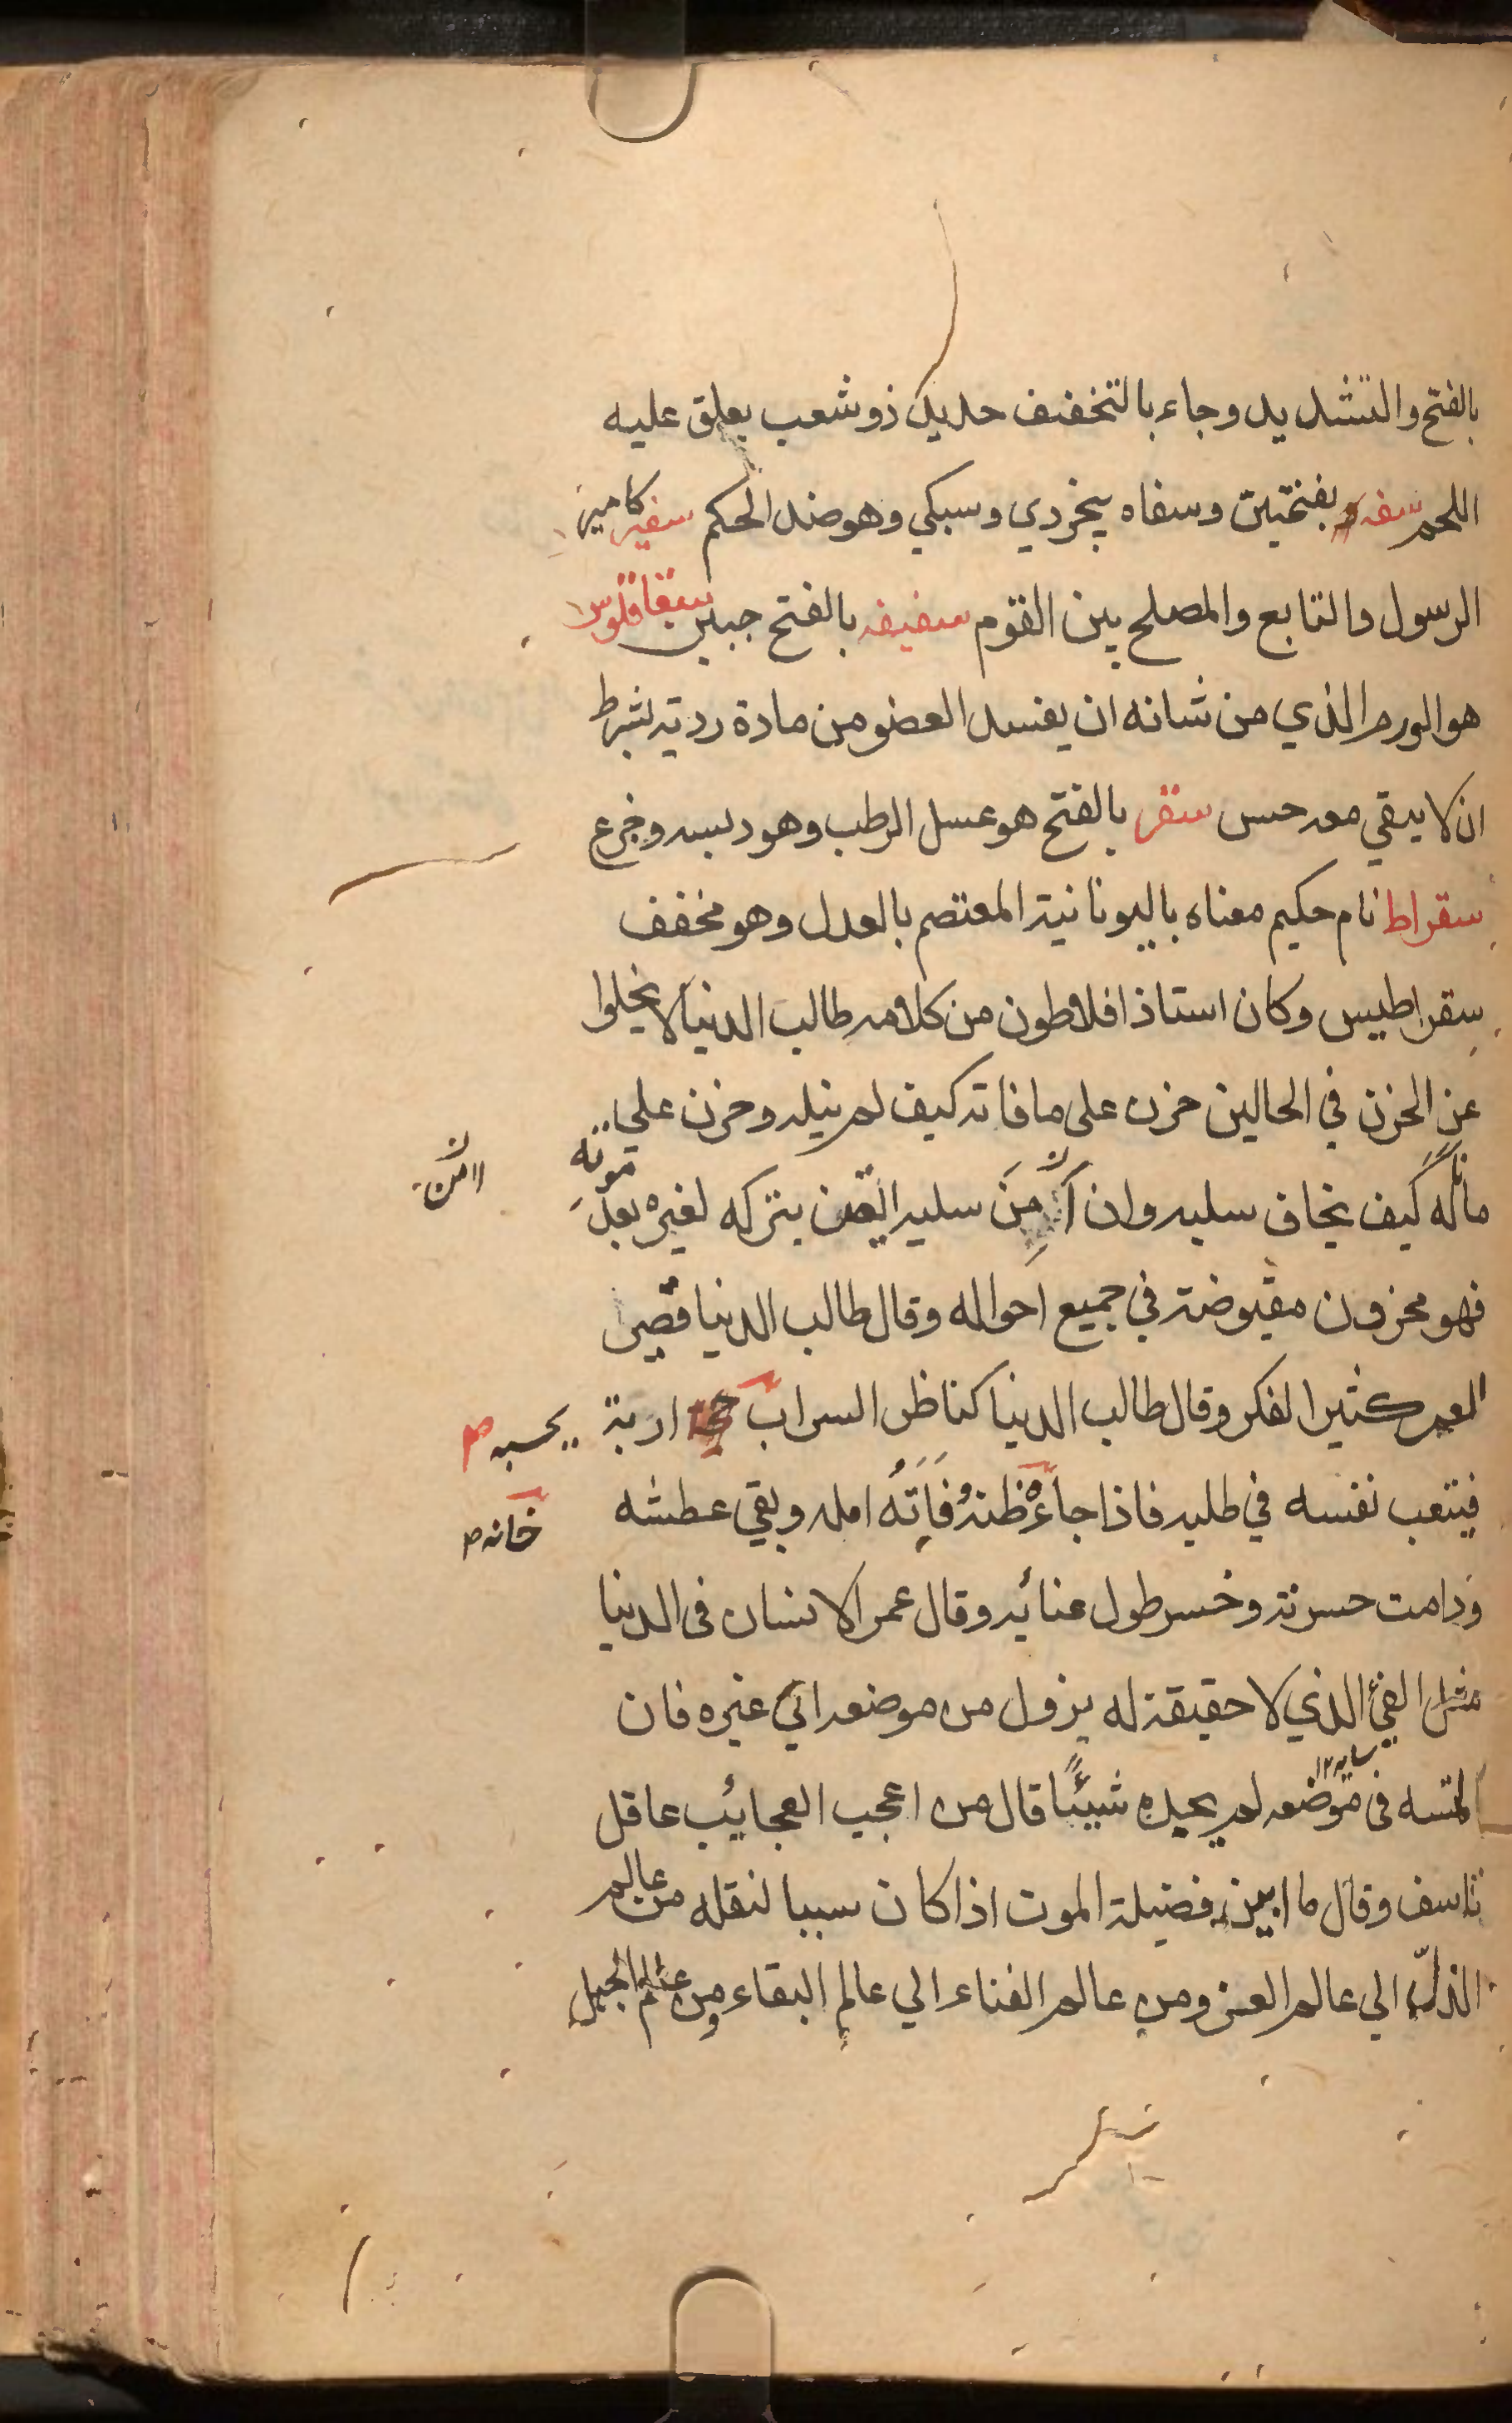 بالفتح والتشديد وجاء بالتخفيف حديد ذو شعب يعلق عليه
اللحم سفه بفتحتين وسفاه بيخردي وسبكي وهو ضد الحكم سفير كامير
الرسول والتابع والمصلح بين القوم سفيفه بالفتح سقاقلوس
هو الورم الذي من شانه ان يفسد العضو من مادة ردية بشرط
ان لا يبقي معه حس سقر بالفتح هو عسل الرطب وهو دبسه
سقراط نام حكيم معناه باليونانية المعتصم بالعدل وهو مخفف
سقراطيس وكان استاذ افلاطون من كلامه طالب الدنيا لا يخلوا
عن الحزن في الحالين حزن على ما فاته كيف لم ينله وحزن علي
ماناله كيف يخاف سلبه وان امن سلبه ايقن بتركه لغيره بعد موته
ان امن
فهو محزون مقبوضة في جميع احواله وقال طالب الدنيا قصير
العمر كثير الفكر وقال طالب الدنيا كناظر السراب يحسبه
فيتعب نفسه في طلبه فاذا جاءه ظنه فاته امله وبقي عطشه
خانه
ودامت حسرته وخسر طول عنائه وقال عمر الانسان في الدنيا
مثل الفئ الذي لا حقيقة له يزول من موضعه الي غيره فان
سايه ١٢
التمسه في موضعه لم يجده شيئًا قال من اعجب العجايب عاقل
تاسف وقال ما ابين فضيلة الموت اذا كان سببا لنقله من عالم
الذل الي عالم العز ومن عالم الفناء الي عالم البقاء ومن عالم الجهل